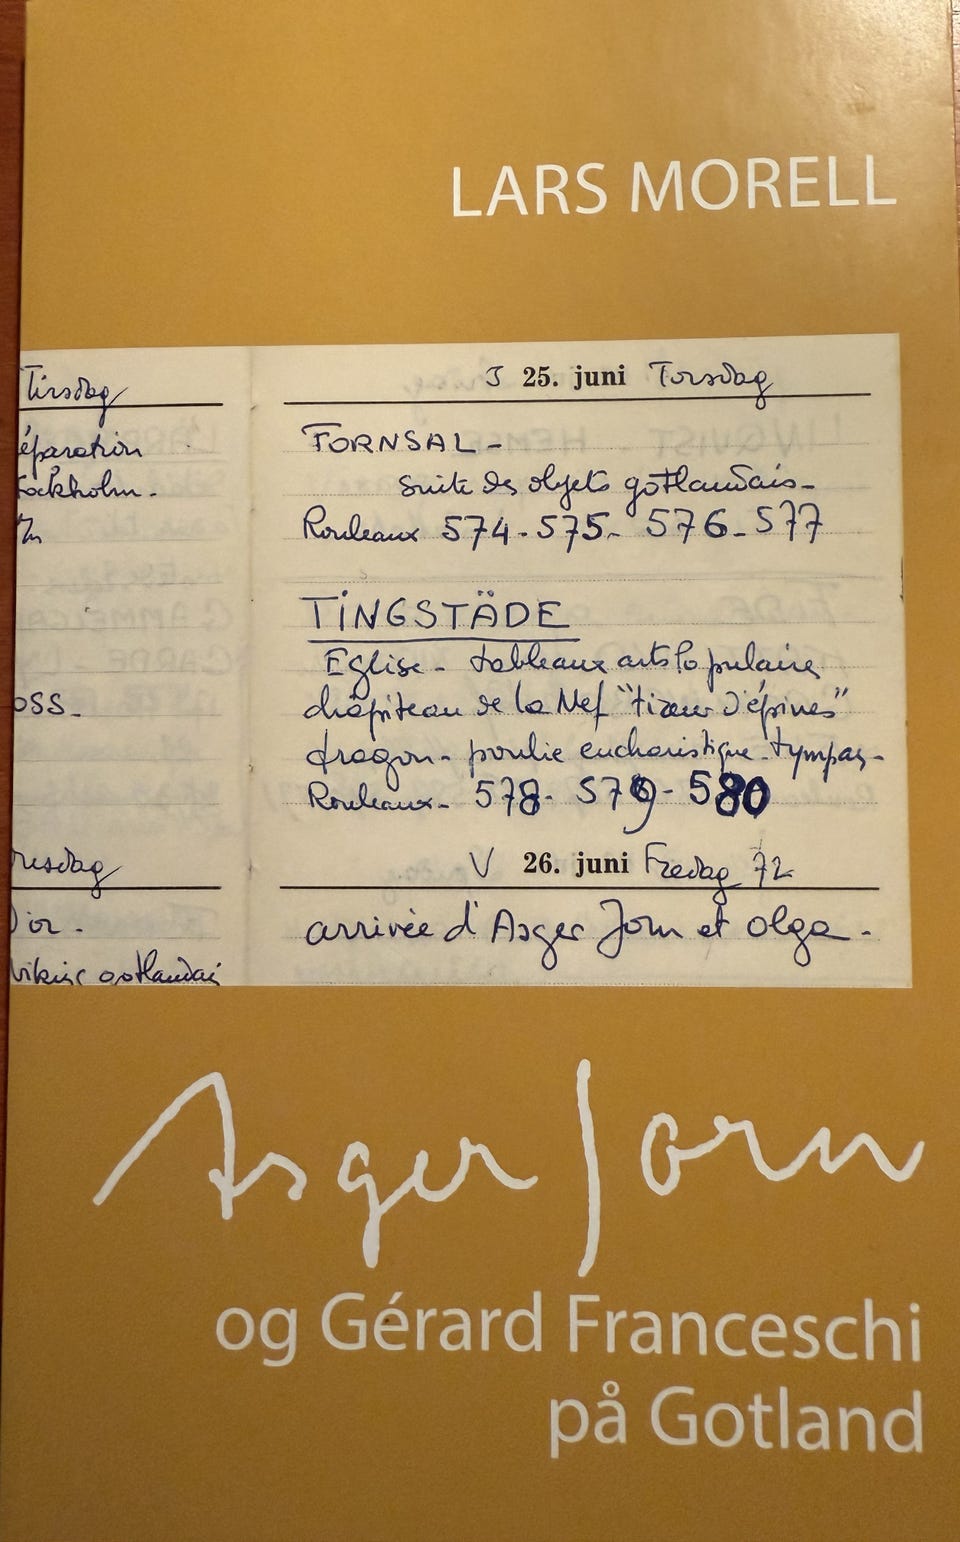 LARS MORELL
Tirsdag
éparation
tockholm.
oss.
J 25. juni Torsdag
FORNSAL -
suite des objets gotlandais -
Rouleaux 574 - 575 - 576 - 577
TINGSTÄDE
Eglise - tableaux arts populaire
chapiteau de la Nef "tireur d'épines"
dragon - poulie eucharistique - tympan -
Rouleaux - 578 - 579 - 580
V 26. juni Fredag 72
arrivée d'Asger Jorn et olga -
nesdag
D'or.
vikisc gotlandais
Asger Jorn
og Gérard Franceschi
på Gotland